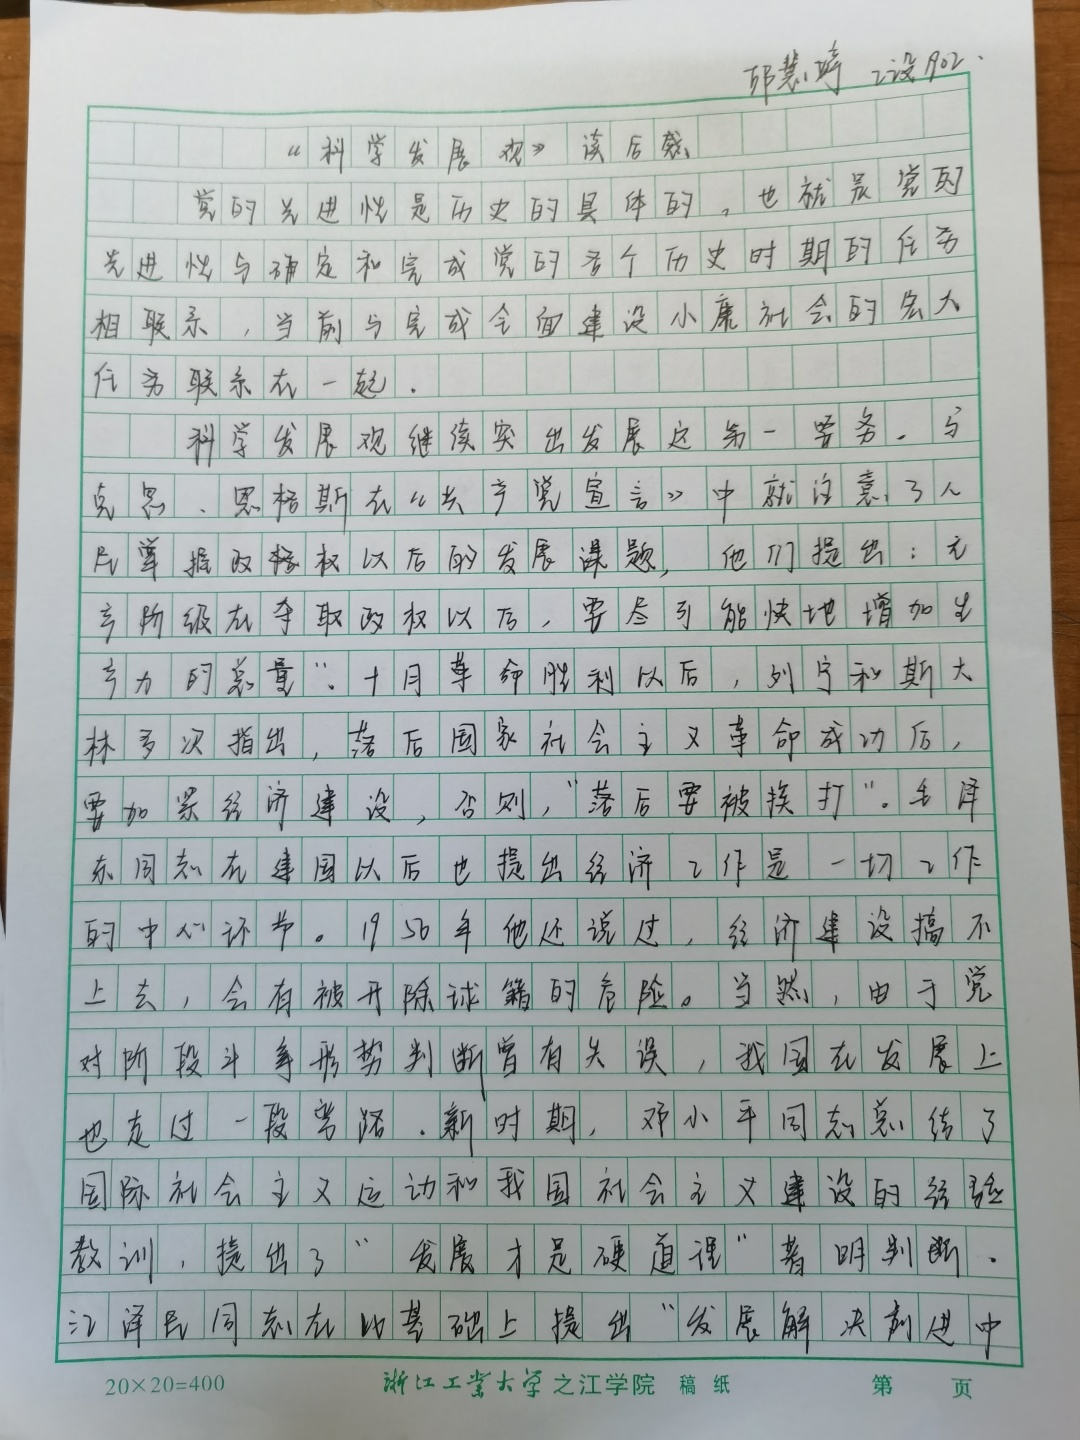 邱慧婷 工设1902.
《科学发展观》读后感
党的先进性是历史的具体的，也就是党的
先进性与确定和完成党的各个历史时期的任务
相联系，当前与完成全面建设小康社会的宏大
任务联系在一起.
科学发展观继续突出发展这第一要务.马
克思、恩格斯在《共产党宣言》中就注意了人
民掌握政权以后的发展课题,他们提出：无
产阶级在夺取政权以后，要尽可能快地增加生
产力的总量".十月革命胜利以后，列宁和斯大
林多次指出，落后国家社会主义革命成功后，
要加紧经济建设，否则，"落后要被挨打"。毛泽
东同志在建国以后也提出经济工作是一切工作
的中心环节。1956年他还说过，经济建设搞不
上去，会有被开除球籍的危险。当然，由于党
对阶段斗争形势判断曾有失误，我国在发展上
也走过一段弯路.新时期，邓小平同志总结了
国际社会主义运动和我国社会主义建设的经验
教训，提出了"发展才是硬道理"著明判断.
江泽民同志在此基础上提出"发展解决前进中
20×20=400 浙江工业大学之江学院 稿纸 第 页